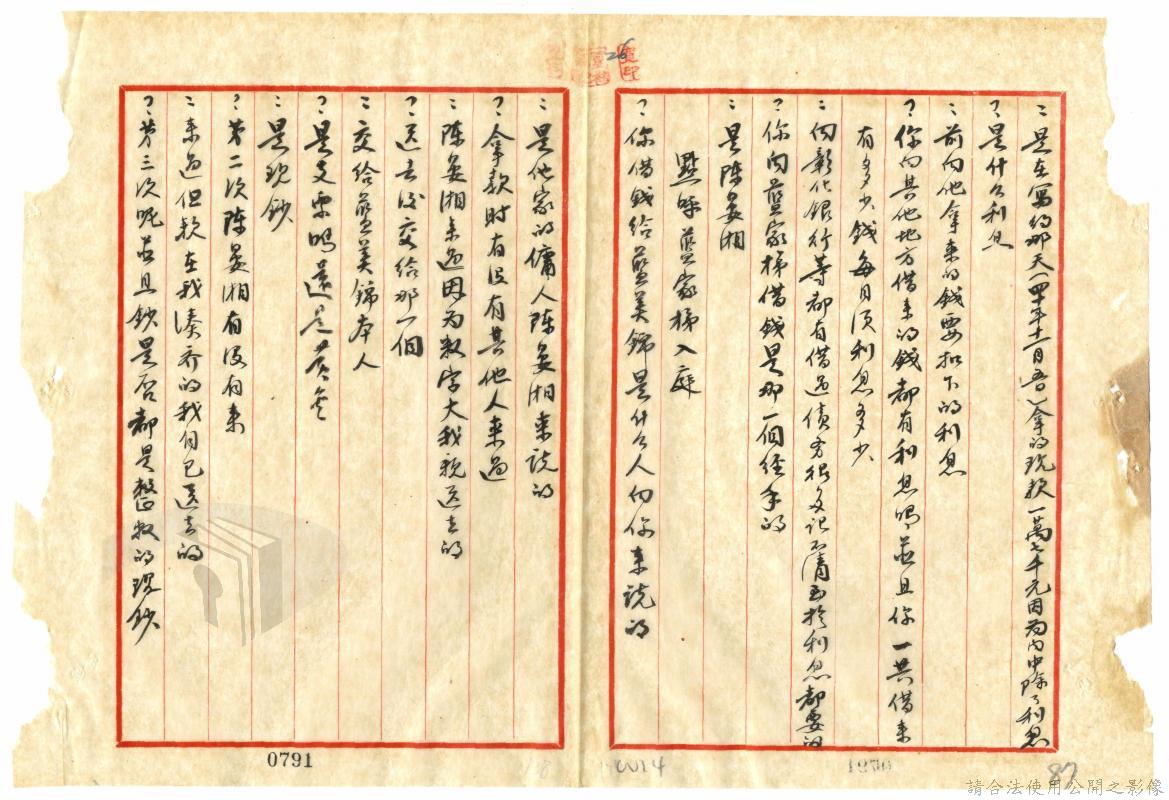 :是在寫的那天(四十年十一月 )拿的現款一萬七千元因為內中除了利息
?是什么利息
:前向他拿來的錢要扣下的利息
?你向其他地方借來的錢都有利息嗎 並且你一共借來
有多少錢每月須利息多少
:向彰化銀行等都有借過債務很多記不清至於利息都要的
?你向藍家梯借錢是那一個經手的
:是陳晏湘
點呼藍家梯入庭
?你借錢給藍美錦是什么人向你來說的
:是他家的傭人陳晏湘來說的
?拿款時有沒有其他人來過
:陳晏湘來過因為數字大我親送去的
?送去后交給那一個
:交給藍美錦本人
?是支票嗎還是
:是現鈔
?第二次陳晏湘有沒有來
:來過但款在我湊齊的我自己送去的
?第三次呢並且鈔是否都是整數的現鈔
0791
1014
1970
87
請合法使用公開之影像